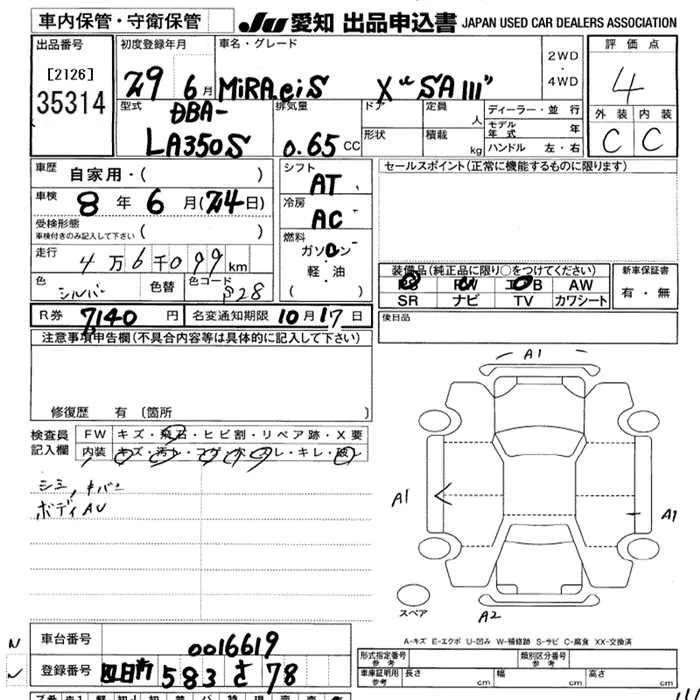 車内保管・守衛保管
JU 愛知 出品申込書 JAPAN USED CAR DEALERS ASSOCIATION
出品番号
[2126]
35314
初度登録年月
29 6月
車名・グレード
MiRA eiS X "SA III"
2WD
・
4WD
評価点
4
外装 内装
C C
型式
DBA-
LA350S
排気量
0.65 CC
ドア
形状
定員
人
積載
kg
ディーラー・並行
モデル年式 年
ハンドル 左・右
車歴
自家用・( )
車検
8年 6月(24日)
受検形態
車検付きのみ記入して下さい ( )
走行
4万6千099km
色
シルバー
色替
色コード
S28
シフト
AT
冷房
AC
燃料
ガソリン
・
軽・油
( )
セールスポイント(正常に機能するものに限ります)
装備品(純正品に限り○をつけてください)
PS PW エアB AW
SR ナビ TV カワシート
新車保証書
有・無
R券 7140 円
名変通知期限 10月17日
後日品
注意事項申告欄(不具合内容等は具体的に記入して下さい)
修復歴 有 (箇所 )
検査員
記入欄
FW キズ・飛石・ヒビ割・リペア跡・X要
内装
シミ,
ボディAU
A1
A1
A1
A2
スペア
A-キズ E-エクボ U-凹み W-補修跡 S-サビ C-腐食 XX-交換済
車台番号
0016619
登録番号
583 さ 78
形式指定番号
参考
類別区分番号
参考
車庫証明用
参考
長さ cm
幅 cm
高さ cm